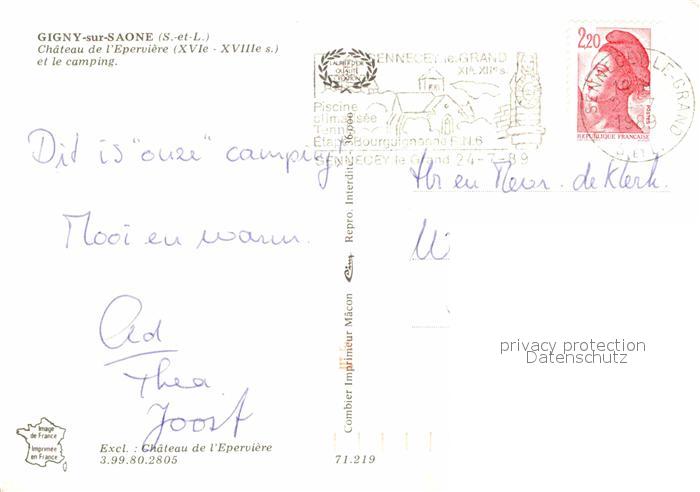 GIGNY-sur-SAONE (S.-et-L.)
Château de l'Epervière (XVIe - XVIIIe s.)
et le camping.
SENNECEY le GRAND
XIe. XIIe s.
Piscine
climatisée
Tennis
Etape Bourguignonne R.N.6
SENNECEY le Grand 24-7-89
SENNECEY-LE-GRAND
1989
2,20
REPUBLIQUE FRANÇAISE
Dit is "onze" camping!
Mooi en warm.
Ad
Thea
Joost
Hr en Mevr. de Klerk.
Combier Imprimeur Mâcon Cim Repro. Interdite - 36.000
privacy protection
Datenschutz
Image
de France
Imprimée
en France
Excl. : Château de l'Epervière
3.99.80.2805
71.219